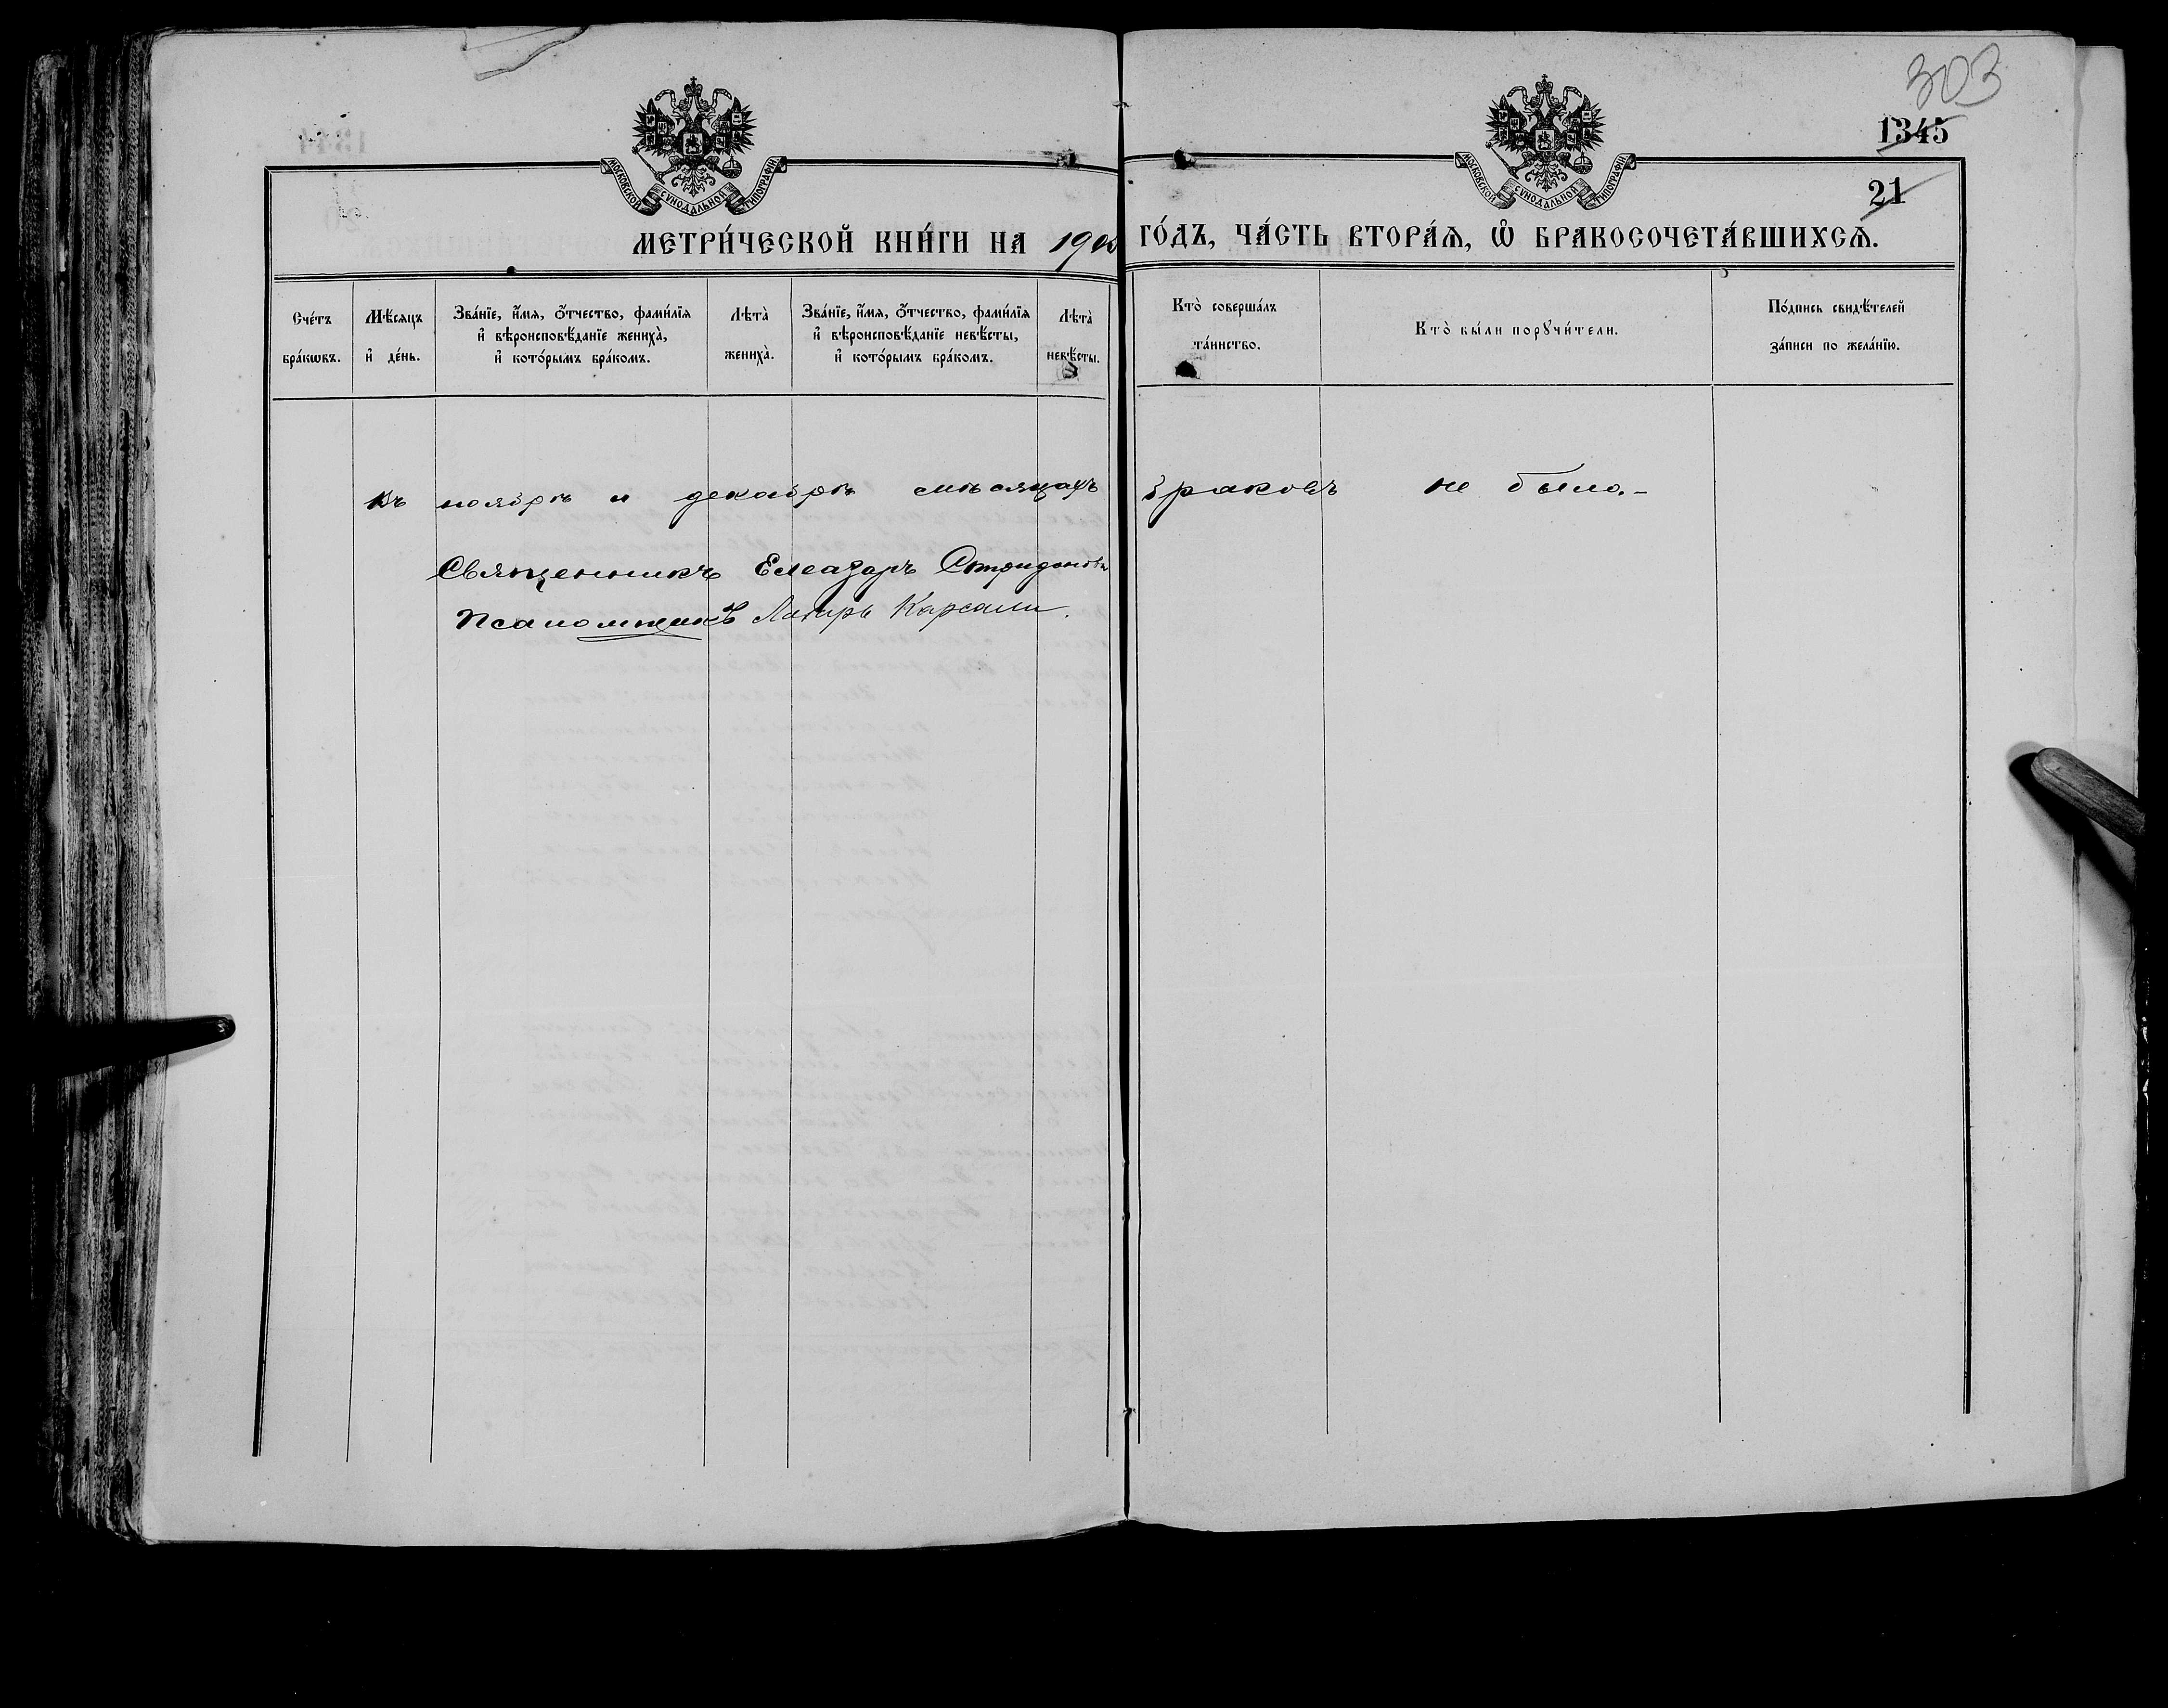 303
1345
21
МОСКОВСКОЙ СѴНОДАЛЬНОЙ ТИПОГРАФІИ
МОСКОВСКОЙ СѴНОДАЛЬНОЙ ТИПОГРАФІИ
МЕТРИ́ЧЕСКОЙ КНИ́ГИ НА 190 ГО́ДЪ, ЧА́СТЬ ВТОРА́Ѧ, Ѽ БРАКОСОЧЕТА́ВШИХСѦ.
Сче́тъ
бра́кѡвъ.
Мѣ́сяцъ
и҆ де́нь.
Зва́нїе, и҆́мя, ѻ҆́тчество, фами́лїя
и҆ вѣроисповѣ́данїе жениха̀,
и҆ кото́рымъ бра́комъ.
Лѣта̀
жениха̀.
Зва́нїе, и҆́мя, ѻ҆́тчество, фами́лїя
и҆ вѣроисповѣ́данїе невѣ́сты,
и҆ кото́рымъ бра́комъ.
Лѣта̀
невѣ́сты.
Кто̀ соверша́лъ
та́инство.
Кто̀ бы́ли порꙋчи́тели.
По́дпись свидѣ́телей
за́писи по жела́нїю.
Въ ноябрѣ и декабрѣ мѣсяцахъ браковъ не было.-
Священникъ Елеазаръ
Псаломщикъ